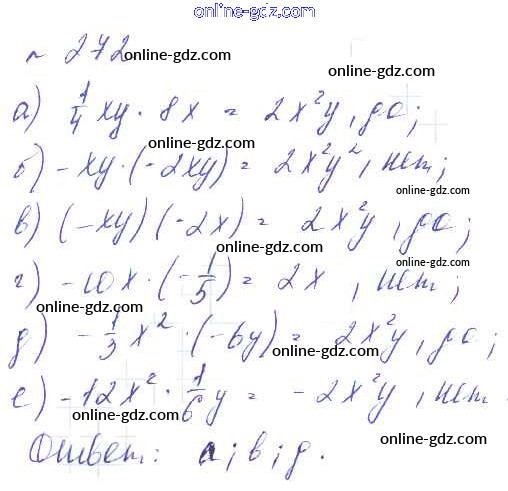 online-gdz.com
n 272 online-gdz.com
online-gdz.com
а) 1/4 xy · 8x = 2x²y, да;
online-gdz.com
б) -xy · (-2xy) = 2x²y², нет;
online-gdz.com
в) (-xy)(-2x) = 2x²y, да;
online-gdz.com
г) -10x · (-1/5) = 2x, нет;
online-gdz.com
online-gdz.com
д) -1/3 x² · (-6y) = 2x²y, да;
online-gdz.com
е) -12x² · 1/6 y = -2x²y, нет.
online-gdz.com
online-gdz.com
Ответ: а; в; д.
online-gdz.com